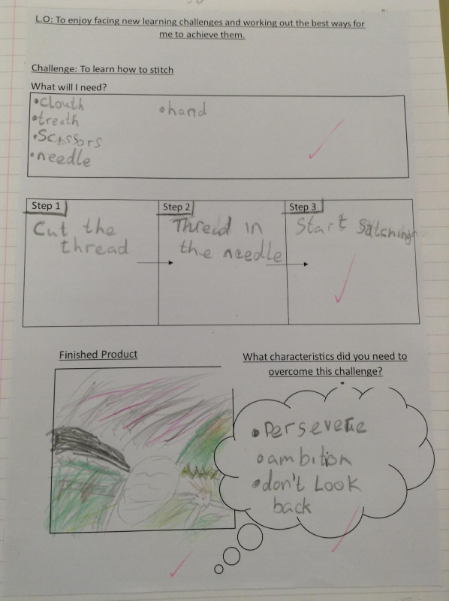 L.O: To enjoy facing new learning challenges and working out the best ways for
me to achieve them.
Challenge: To learn how to stitch
What will I need?
•clouth •hand
•treath
•Scissors
•needle
Step 1 Step 2 Step 3
Cut the Thread in Start
thread the needle
Finished Product What characteristics did you need to
overcome this challenge?
•Persevere
•ambition
•don't Look
back